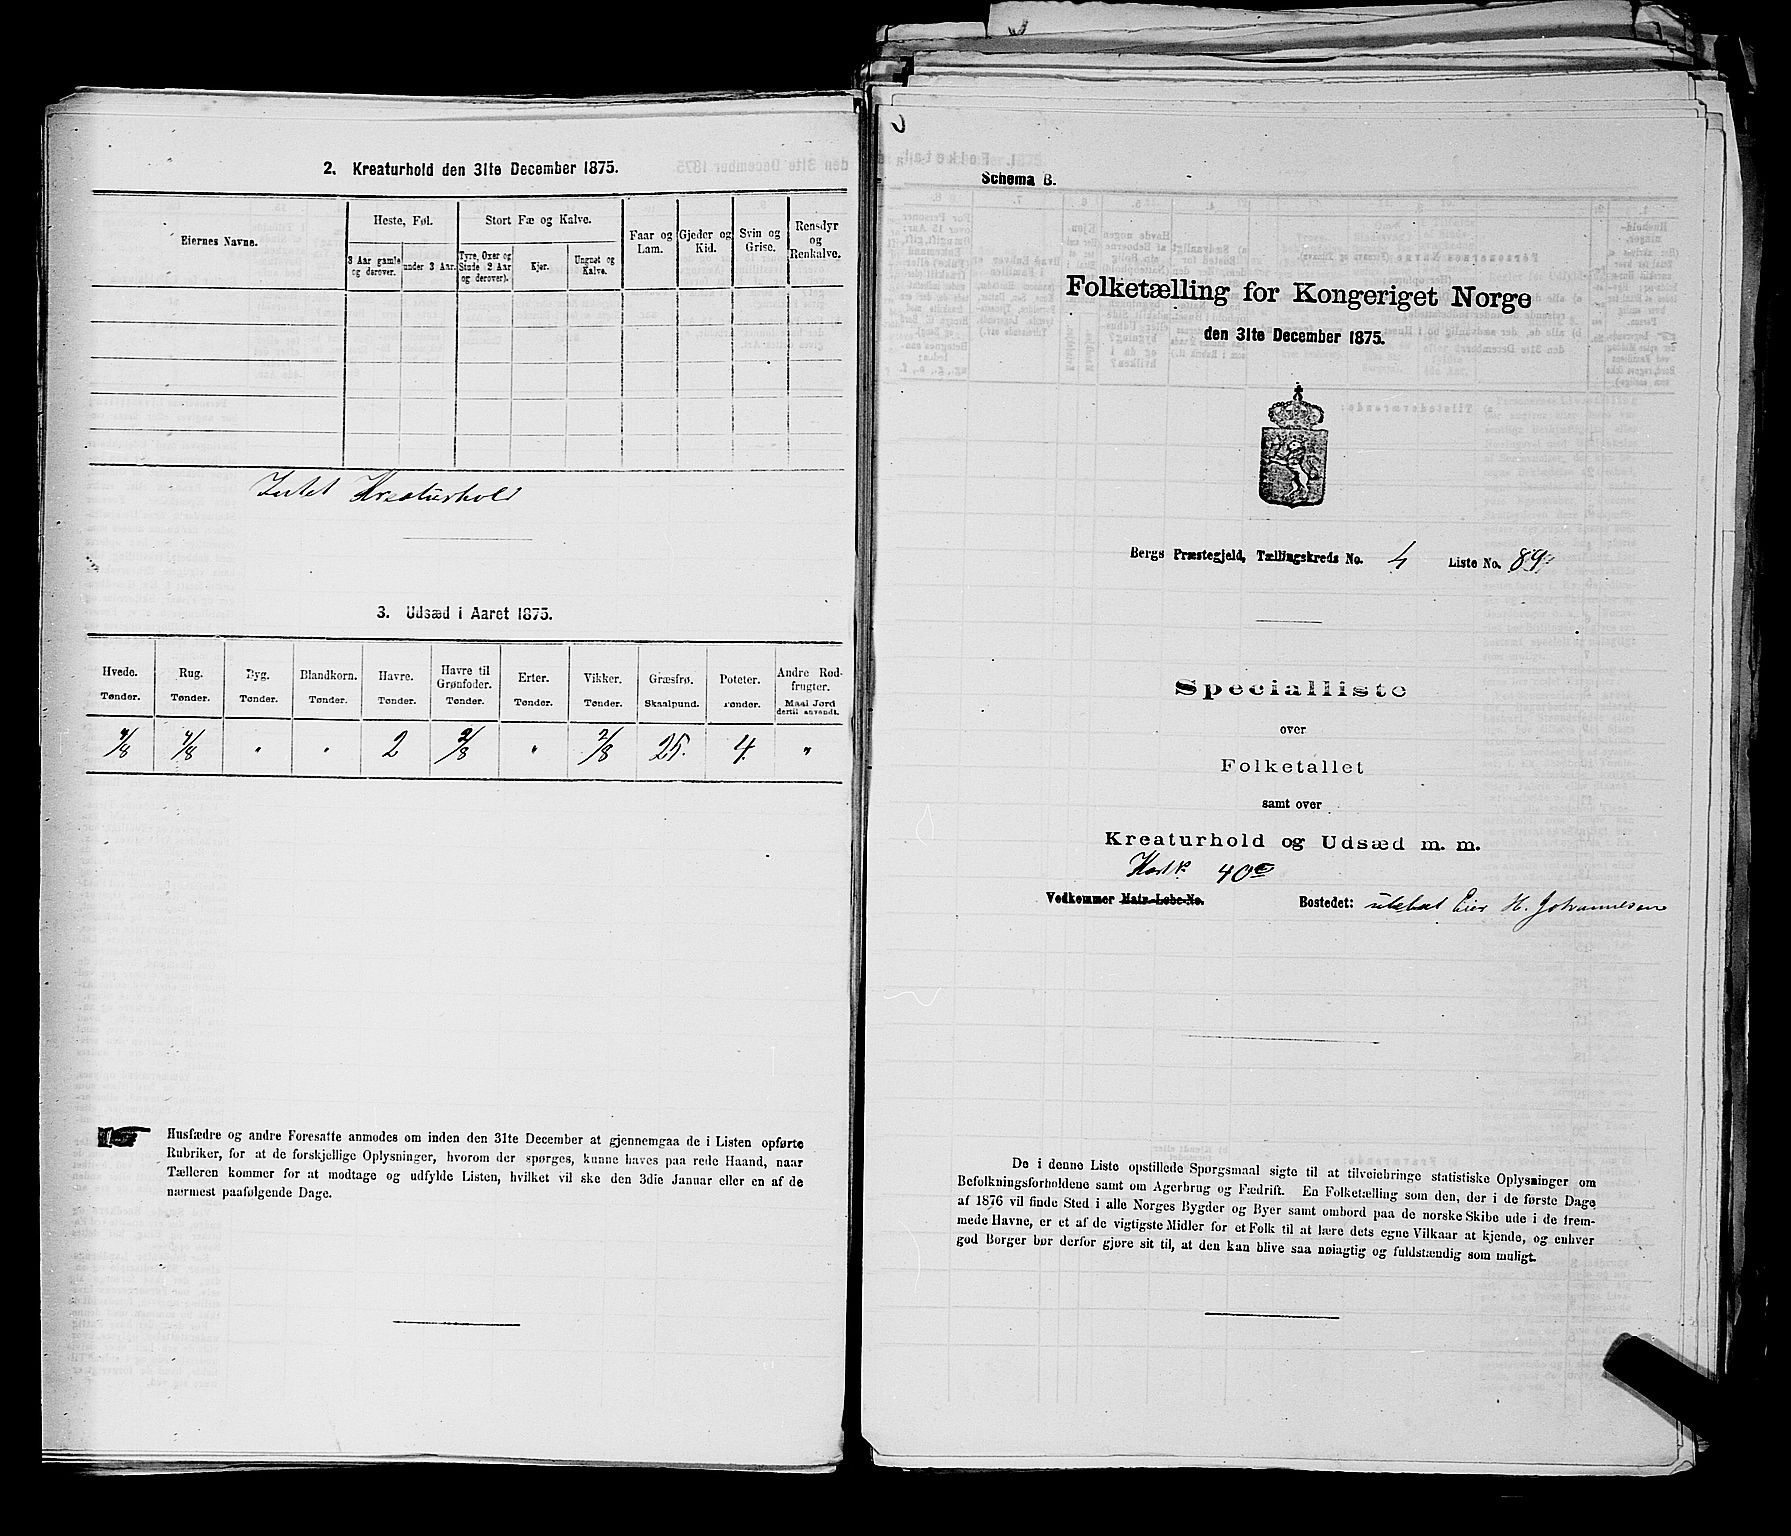 2. Kreaturhold den 31te December 1875.
Eiernes Navne.
Heste, Føl.
Stort Fæ og Kalve.
Faar og Lam.
Gjeder og Kid.
Svin og Grise.
Rensdyr og Renkalve.
3 Aar gamle og derover.
under 3 Aar.
Tyre, Oxer og Stude (2 Aar og derover).
Kjør.
Ungnøt og Kalve.
Intet Kreaturhold
3. Udsæd i Aaret 1875.
Hvede. Rug. Byg. Blandkorn. Havre. Havre til Grønfoder. Erter. Vikker. Græsfrø. Poteter. Andre Rodfrugter.
Tønder. Tønder. Tønder. Tønder. Tønder. Tønder. Tønder. Tønder. Skaalpund. Tønder. Maal Jord dertil anvendt.
/8 /8 " " 2 2/8 " 2/8 25. 4. "
Husfædre og andre Foresatte anmodes om inden den 31te December at gjennemgaa de i Listen opførte
Rubriker, for at de forskjellige Oplysninger, hvorom der spørges, kunne haves paa rede Haand, naar
Tælleren kommer for at modtage og udfylde Listen, hvilket vil ske den 3die Januar eller en af de
nærmest paafølgende Dage.
Schema B.
Folketælling for Kongeriget Norge
den 31te December 1875.
Bergs Præstegjeld, Tællingskreds No. 4 Liste No. 89.
Specialliste
over
Folketallet
samt over
Kreaturhold og Udsæd m. m.
40c
Vedkommer Matr.-Løbe-No. Bostedet: Eier H. Johannesen
De i denne Liste opstillede Spørgsmaal sigte til at tilveiebringe statistiske Oplysninger om
Befolkningsforholdene samt om Agerbrug og Fædrift. En Folketælling som den, der i de første Dage
af 1876 vil finde Sted i alle Norges Bygder og Byer samt ombord paa de norske Skibe ude i de frem-
mede Havne, er et af de vigtigste Midler for et Folk til at lære dets egne Vilkaar at kjende, og enhver
god Borger bør derfor gjøre sit til, at den kan blive saa nøiagtig og fuldstændig som muligt.